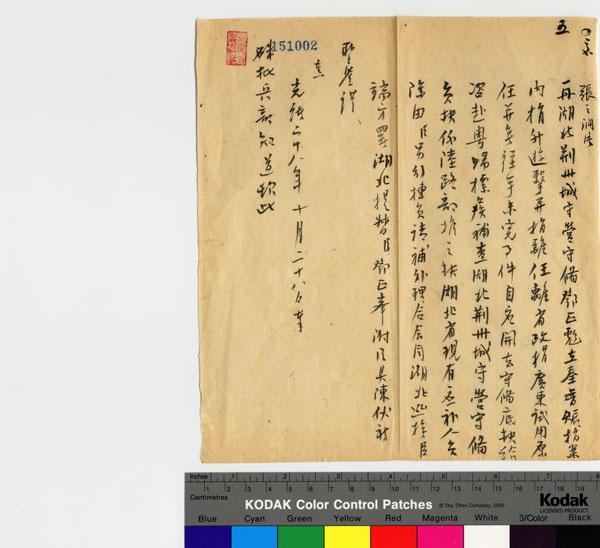 五
張之洞片
再湖北荊州城守營守備鄧正彪在秦晉賑捐案
內捐升遊擊并捐離任離省改捐廣東試用原
任并無經手未完事件自應開去守備底缺給
咨赴粵歸標候補查湖北荊州城守營守備
員缺係陸路部推之缺湖北省現有應補人員
除由臣另行揀員請補外理合會同湖北巡撫臣
端方署湖北提督臣鄧正峯附片具陳伏祈
聖鑒謹
奏
光緒二十八年十月二十八日奉
硃批兵部知道欽此
151002
Inches
1 2 3 4 5 6 7 8
Centimetres
1 2 3 4 5 6 7 8 9 10 11 12 13 14 15 16 17 18 19
KODAK Color Control Patches
© The Tiffen Company, 2000
Kodak
LICENSED PRODUCT
Blue Cyan Green Yellow Red Magenta White 3/Color Black